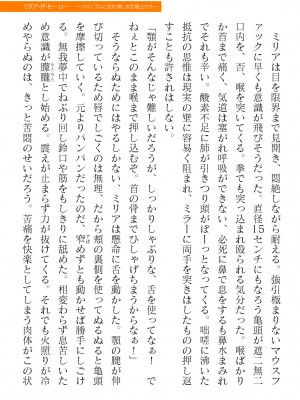 ミリアは目を限界まで見開き、悶絶しながら耐える。強引極まりないマウスフ
ァックに早くも意識が飛びそうだった。直径15センチにもなろう亀頭が遮二無二
口内を、否、喉を突いてくる。拳でも突っ込まれ殴られる気分だった。喉ばかり
か首まで痛く、気道は塞がれ呼吸ができない。必死に鼻で息をするも鼻水まみれ
でそれも辛い。酸素不足に肺が引きつり頭がぼーとなってくる。咄嗟に沸いた
抵抗の思惟は現実の壁に容易く阻まれ、ミラーに両手を突きはしたものの押し返
すことも許されはしない。
「顎がそんなじゃ難しいだろうが、しっかりしゃぶりな、舌を使ってなぁ！　で
ねぇとこのまま喉まで押し込むぞ。首の骨までひしゃげちまうからなぁ！」
そうならぬためにはやるしかない、ミリアは懸命に舌を動かした。顎の腱が伸
び切っているため唇でしごくのは無理、だから頬の裏側を使ってぬるぬると亀頭
を摩擦していく。元よりパンパンだったのだ、窄めずとも動かせば勝手にしごけ
る。無我夢中でねぶり回し鈴口や筋をもしきりに舐めた。相変わらず息苦しいた
め意識が朦朧とししめる。震えが止まらず力が抜けてくる。それでも火照りが冷
めやらぬのは、きっと苦悶のせいだろう。苦痛を快楽としてしまう肉体がこの状